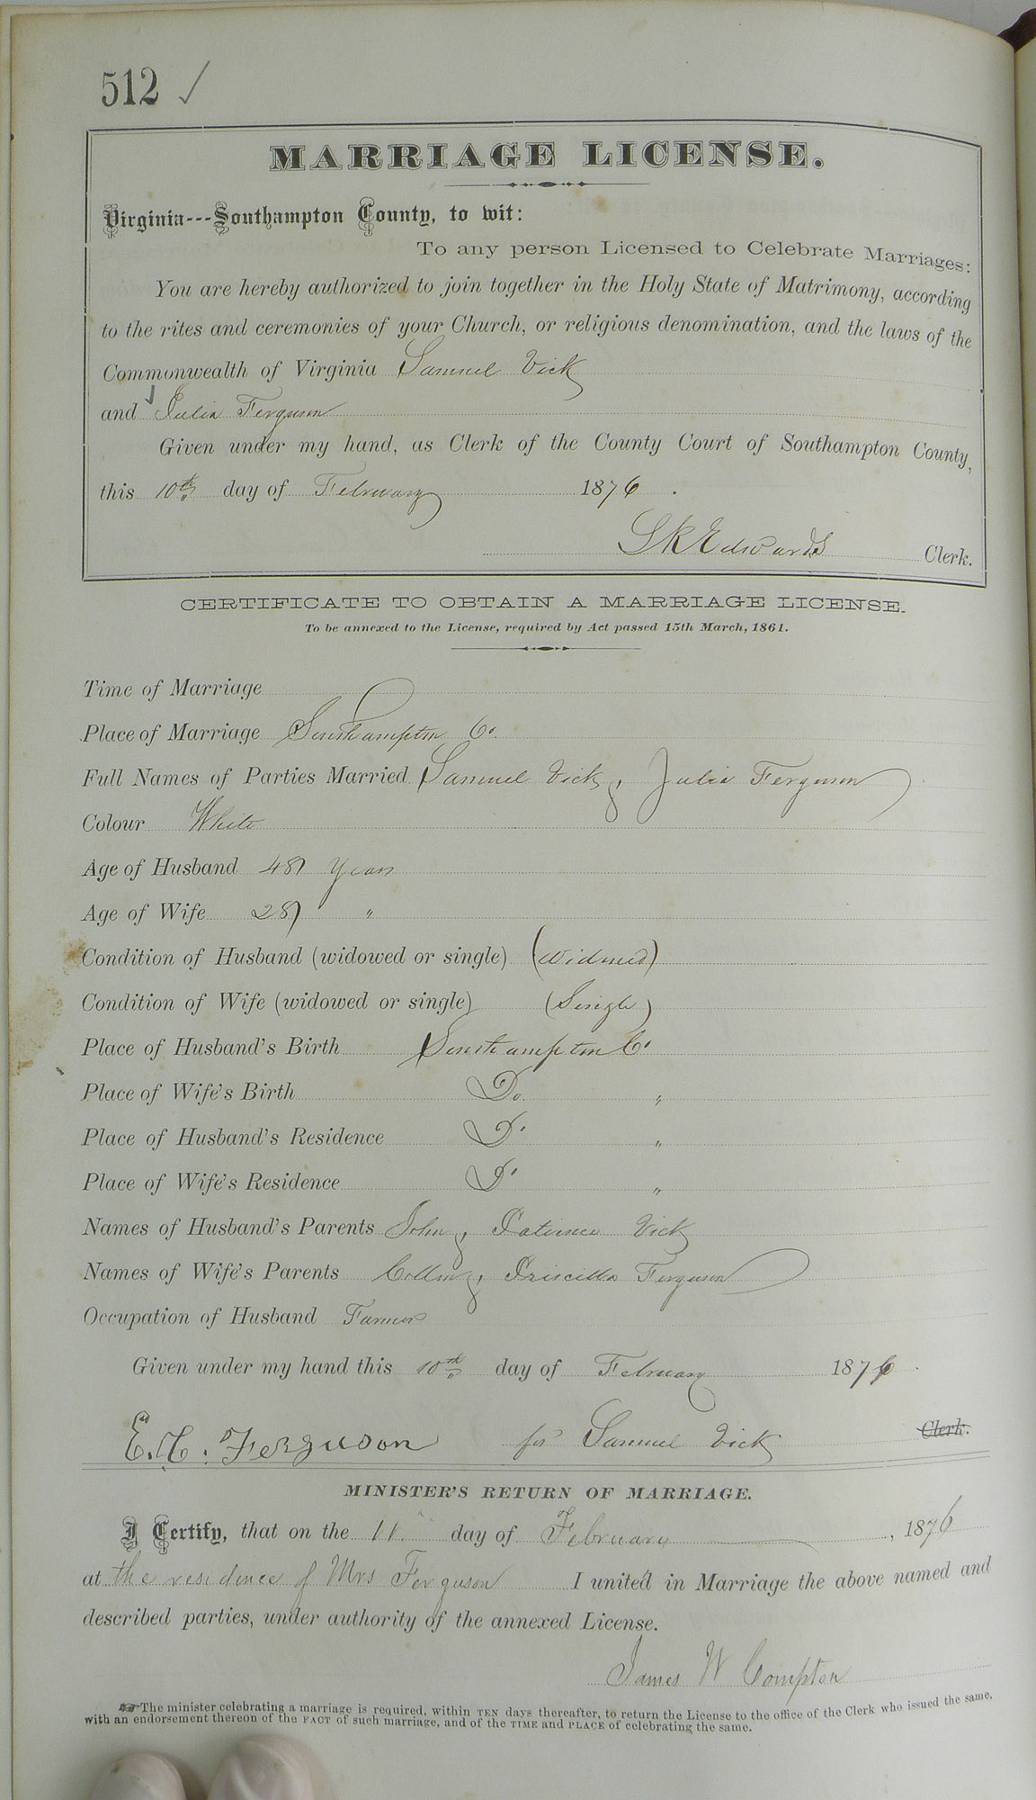 512 ✓
MARRIAGE LICENSE.
Virginia---Southampton County, to wit:
To any person Licensed to Celebrate Marriages:
You are hereby authorized to join together in the Holy State of Matrimony, according
to the rites and ceremonies of your Church, or religious denomination, and the laws of the
Commonwealth of Virginia Samuel Vick
and Julia Ferguson
Given under my hand, as Clerk of the County Court of Southampton County,
this 10th day of February 1876.
L R Edwards Clerk.
CERTIFICATE TO OBTAIN A MARRIAGE LICENSE.
To be annexed to the License, required by Act passed 15th March, 1861.
Time of Marriage
Place of Marriage Southampton Co.
Full Names of Parties Married Samuel Vick & Julia Ferguson
Colour White
Age of Husband 48 Years
Age of Wife 28 "
Condition of Husband (widowed or single) (Widowed)
Condition of Wife (widowed or single) (Single)
Place of Husband's Birth Southampton Co.
Place of Wife's Birth Do. "
Place of Husband's Residence Do "
Place of Wife's Residence Do "
Names of Husband's Parents John & Patience Vick
Names of Wife's Parents & Priscilla Ferguson
Occupation of Husband Farmer
Given under my hand this 10th day of February 1876.
Ferguson for Samuel Vick Clerk.
MINISTER'S RETURN OF MARRIAGE.
I Certify, that on the 11 day of February, 1876
at the residence of Mrs Ferguson I united in Marriage the above named and
described parties, under authority of the annexed License.
James W Compton
☞The minister celebrating a marriage is required, within TEN days thereafter, to return the License to the office of the Clerk who issued the same,
with an endorsement thereon of the FACT of such marriage, and of the TIME and PLACE of celebrating the same.